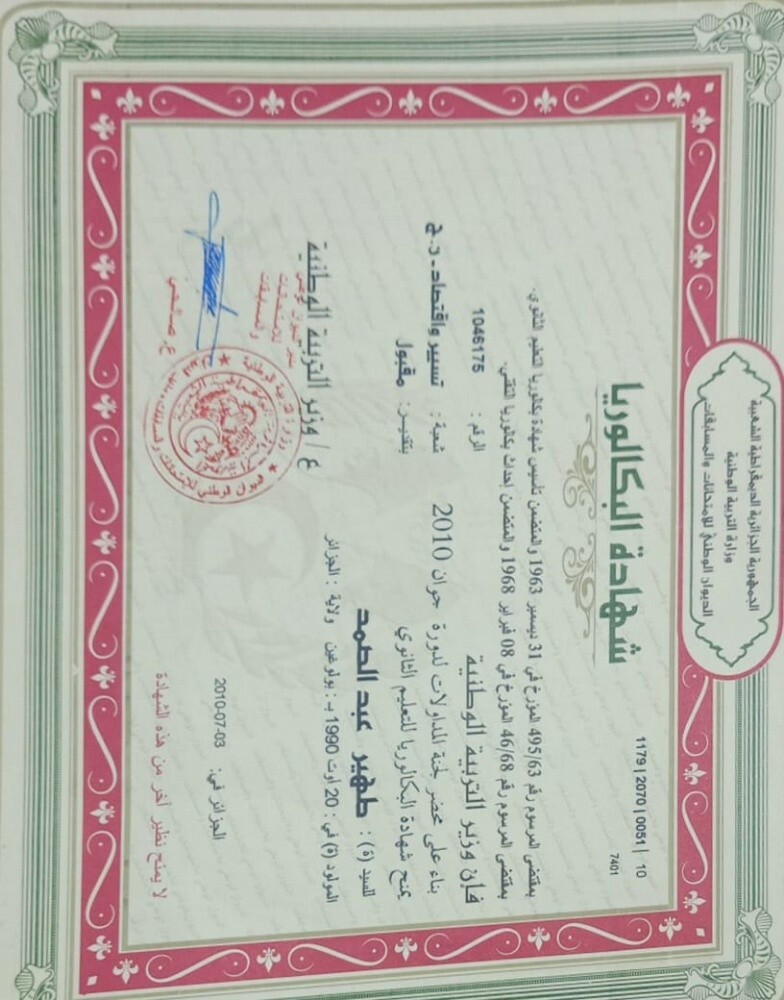 الجمهورية الجزائرية الديمقراطية الشعبية
وزارة التربية الوطنية
الديوان الوطني للامتحانات والمسابقات
1179 | 2070 | 0051 | 10
7401
شهادة البكالوريا
بمقتضى المرسوم رقم 495/63 المؤرخ في 31 ديسمبر 1963 والمتضمن تأسيس شهادة بكالوريا التعليم الثانوي.
بمقتضى المرسوم رقم 46/68 المؤرخ في 08 فبراير 1968 والمتضمن إحداث بكالوريا التقني.
فإن وزير التربية الوطنية
الرقم : 1046175
بناء على محضر لجنة المداولات لدورة جوان 2010
شعبة : تسيير واقتصاد-د.ج
يمنح شهادة البكالوريا للتعليم الثانوي
بتقدير: مقبول
للسيد (ة) : طهير عبد الصمد
المولود (ة) في : 20 أوت 1990 بـ : بولوغين ولاية : الجزائر
ع / وزير التربية الوطنية
الجزائر في: 2010-07-03
لا يمنح نظير آخر من هذه الشهادة